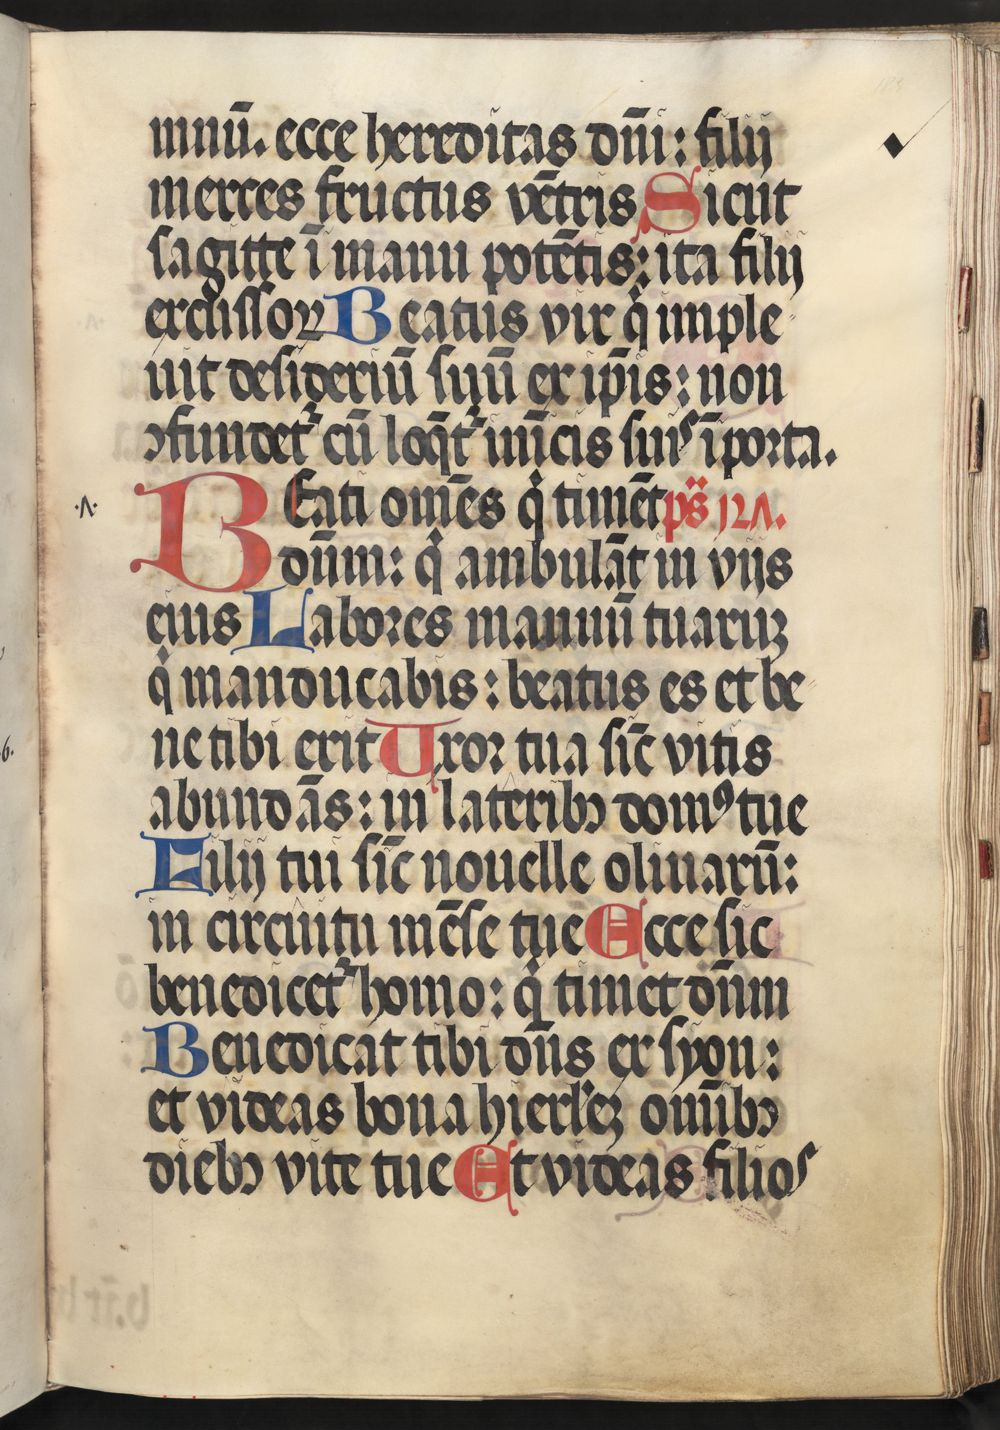 mnū. ecce hereditas dn̄i: filij
merces fructus vētris Sicut
sagitte ī manu potētis: ita filij
excussoꝝ Beatus vir q̇ imple
uit desideriū suū ex ip̄is: non
ↄfundet᷑ cū loq̄t᷑ inīcis suis ī porta.
BEati om̄es q̇ timēt ps̄ 127.
dn̄m: q̇ ambulāt in vijs
eius Labores manuū tuaruꝫ
q̇ manducabis: beatus es et be
ne tibi erit Uxor tua sic̄ vitis
abundās: in lateribꝰ domꝰ tue
Filij tui sic̄ nouelle oliuarū:
in circuitu mēse tue Ecce sic
benedicet᷑ homo: q̇ timet dn̄m
Benedicat tibi dn̄s ex syon:
et videas bona hierl'eꝫ om̄ibꝰ
diebꝰ vite tue Et videas filios